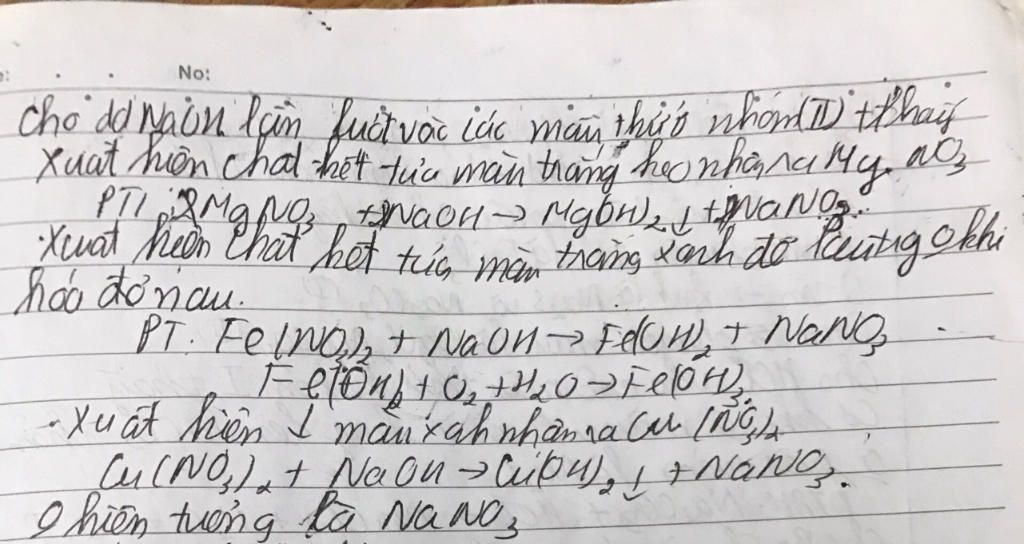 No:
cho dd NaOH lần lượt vào các mẫu thử ở nhóm (II) thấy
Xuất hiện chất kết tủa màu trắng keo nhận ra Mg NO3
PT: 2MgNO3 + NaOH → Mg(OH)2↓ + NaNO3.
. Xuất hiện chất kết tủa màu trắng xanh để khi
hóa đỏ nâu.
PT: Fe(NO3)2 + NaOH → Fe(OH)2 + NaNO3
Fe(OH)2 + O2 + H2O → Fe(OH)3.
. Xuất hiện ↓ màu xanh nhận ra Cu (NO3)2
Cu(NO3)2 + NaOH → Cu(OH)2↓ + NaNO3.
0 hiện tượng là NaNO3